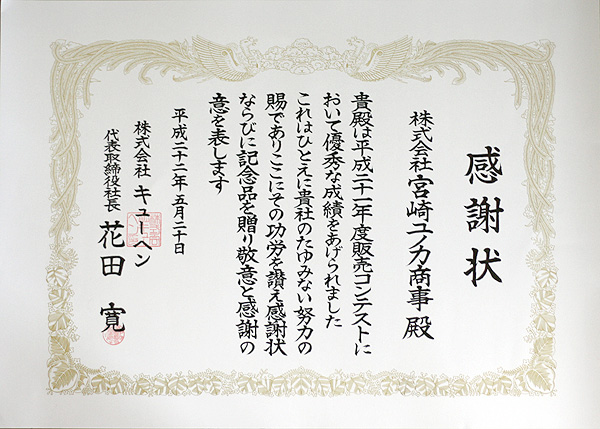 感謝状
株式会社 宮崎ユノカ商事 殿
貴殿は平成二十一年度販売コンテストに
おいて優秀な成績をあげられました
これはひとえに貴社のたゆみない努力の
賜でありここにその功労を讃え感謝状
ならびに記念品を贈り敬意と感謝の
意を表します
平成二十二年五月二十日
株式会社 キューヘン
代表取締役社長 花田 寛